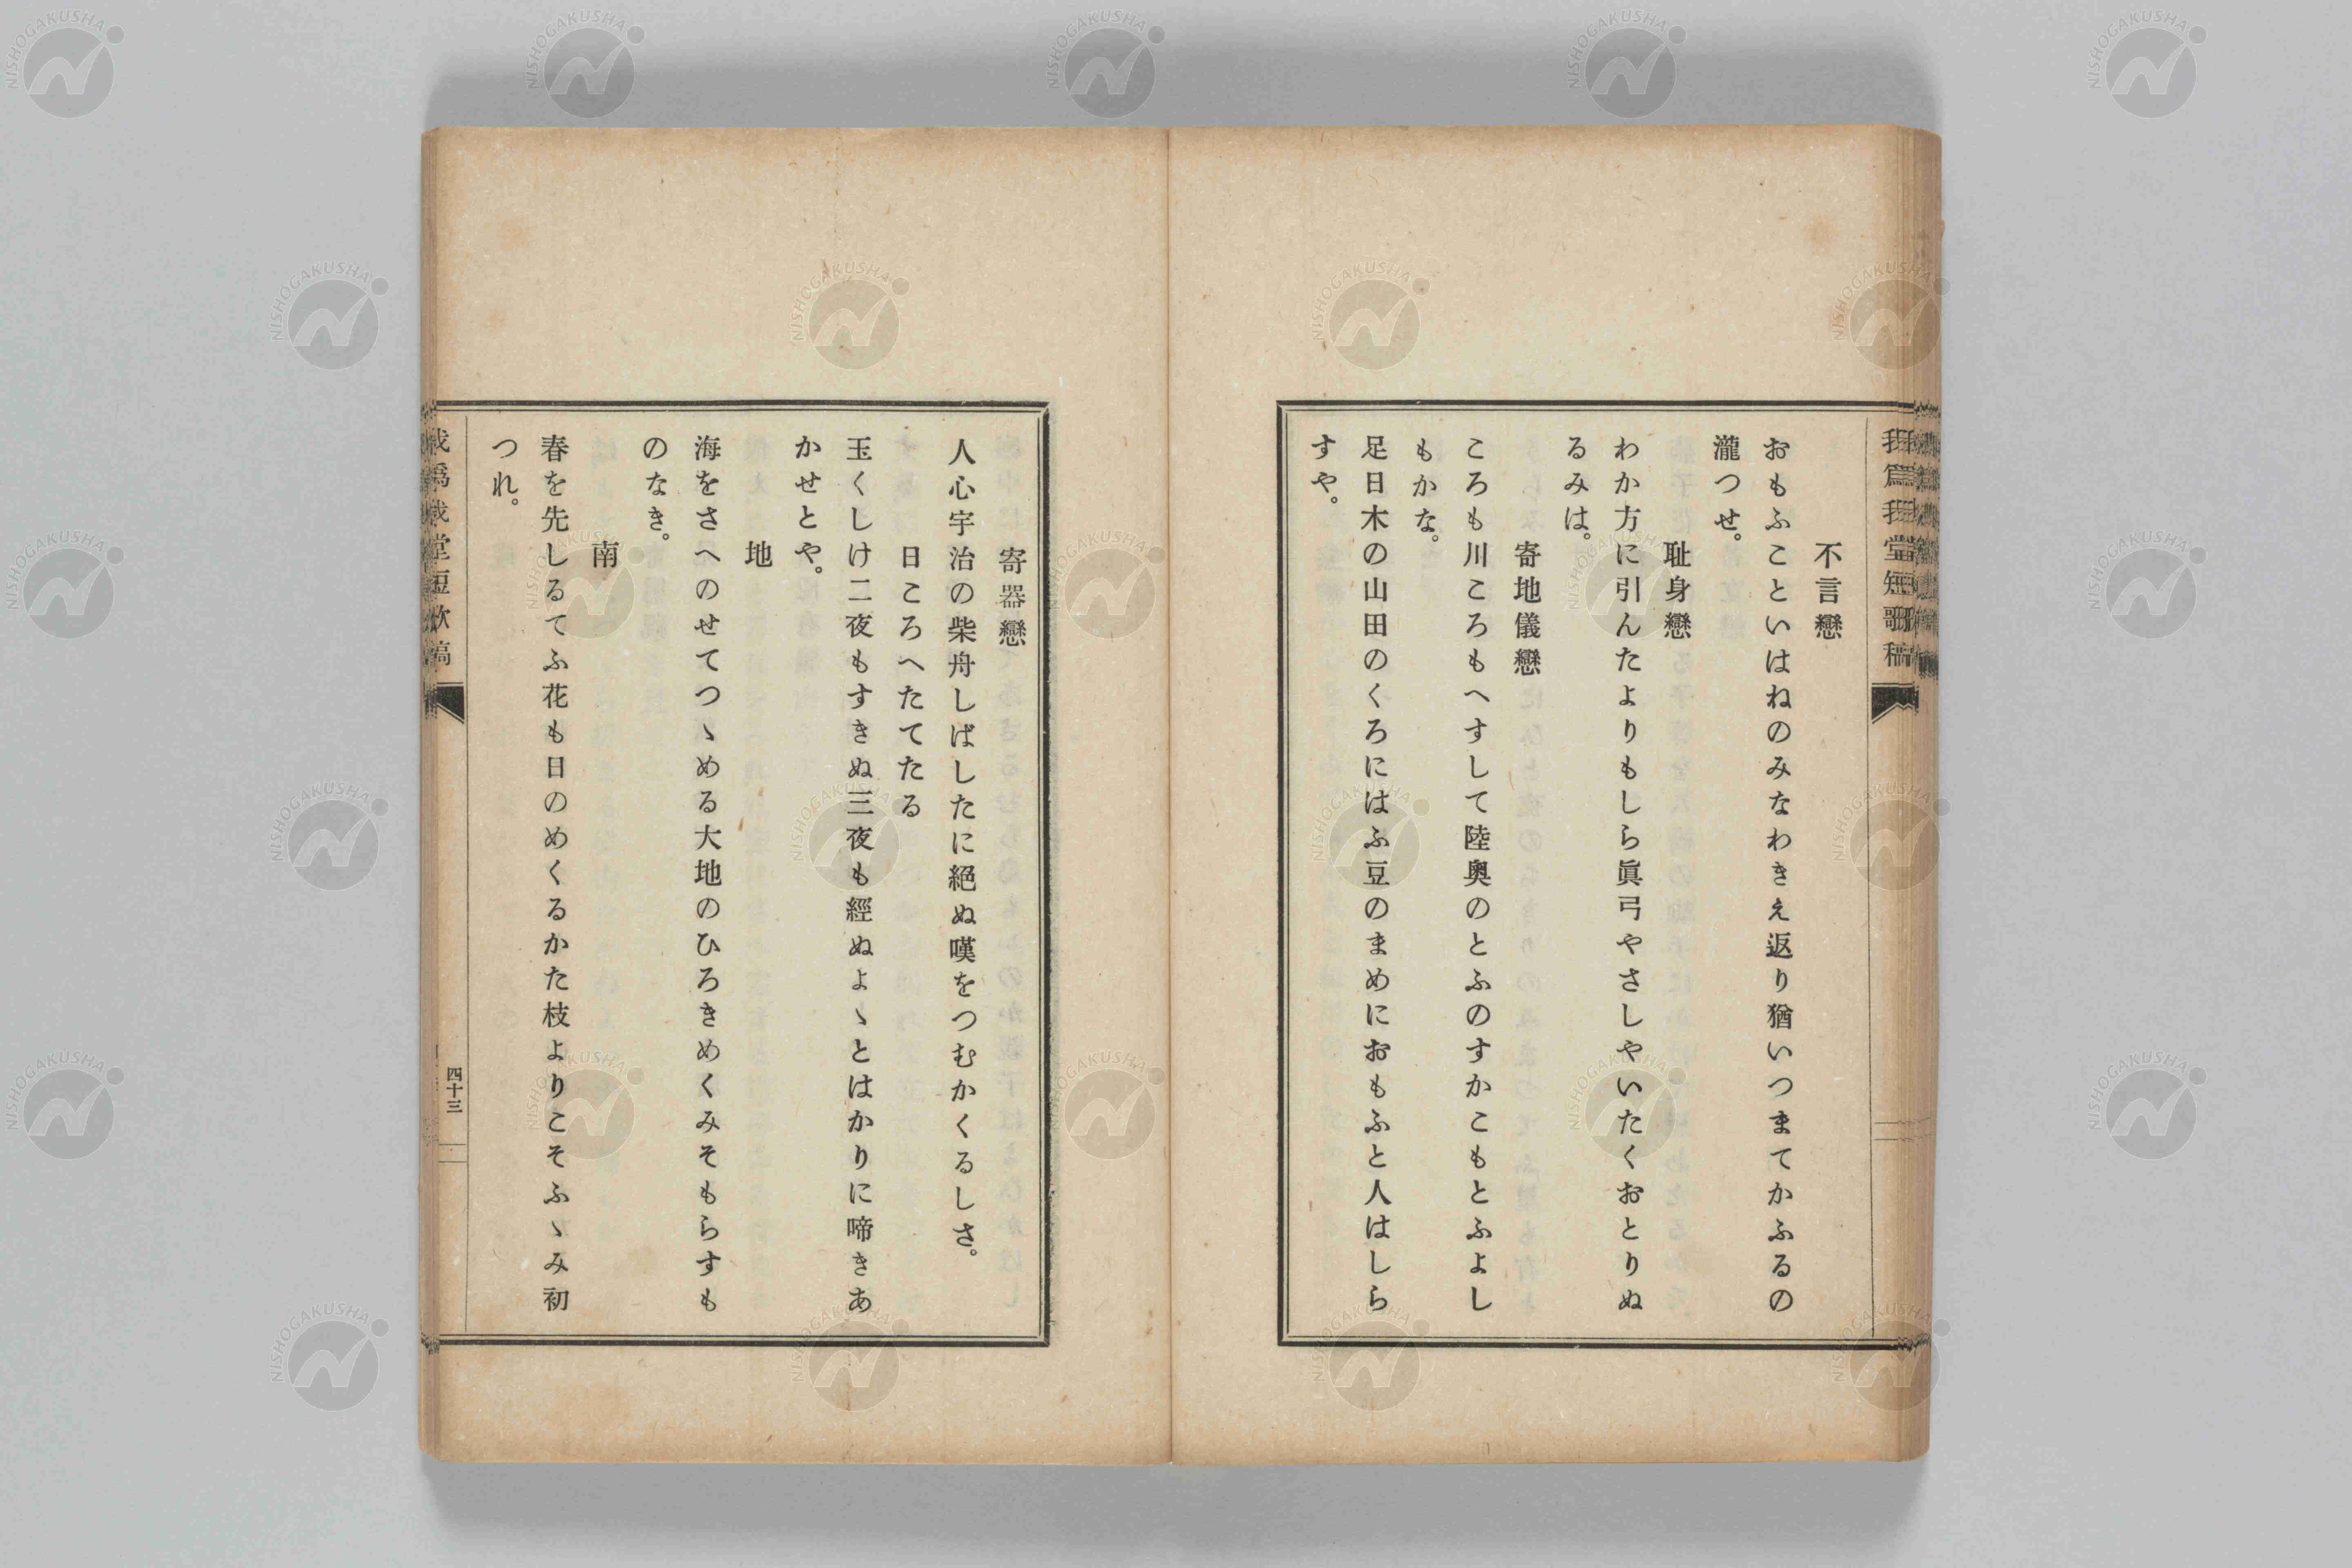 我爲我堂短歌稿
不言戀
おもふこといはねのみなわきえ返り猶いつまてかふるの
瀧つせ。
耻身戀
わか方に引んたよりもしら眞弓やさしやいたくおとりぬ
るみは。
寄地儀戀
ころも川ころもへすして陸奥のとふのすかこもとふよし
もかな。
足日木の山田のくろにはふ豆のまめにおもふと人はしら
すや。
寄器戀
人心宇治の柴舟しばしたに絕ぬ嘆をつむかくるしさ。
日ころへたてたる
玉くしけ二夜もすきぬ三夜も經ぬよゝとはかりに啼きあ
かせとや。
地
海をさへのせてつゝめる大地のひろきめくみそもらすも
のなき。
南
春を先しるてふ花も日のめくるかた枝よりこそふゝみ初
つれ。
我爲我堂短歌稿
四十三
NISHOGAKUSHA